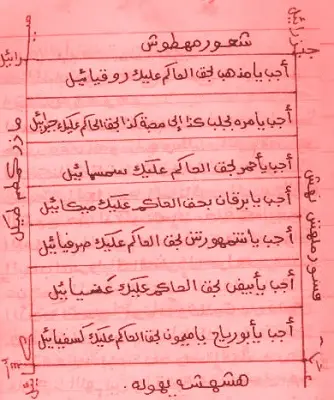 شعور مهطوش
أجب يا مذهب بحق الحاكم عليك روقيائيل
أجب يا مره بجلب كذا إلى محبة كذا بحق الحاكم عليك جبرائيل
أجب يا أحمر بحق الحاكم عليك سمسمائيل
أجب يا برقان بحق الحاكم عليك ميكائيل
أجب يا شمهورش بحق الحاكم عليك صرفيائيل
أجب يا أبيض بحق الحاكم عليك عنيائيل
أجب يا أبو رياح يا ميمون بحق الحاكم عليك كسفيائيل
هشهشه يهوله.